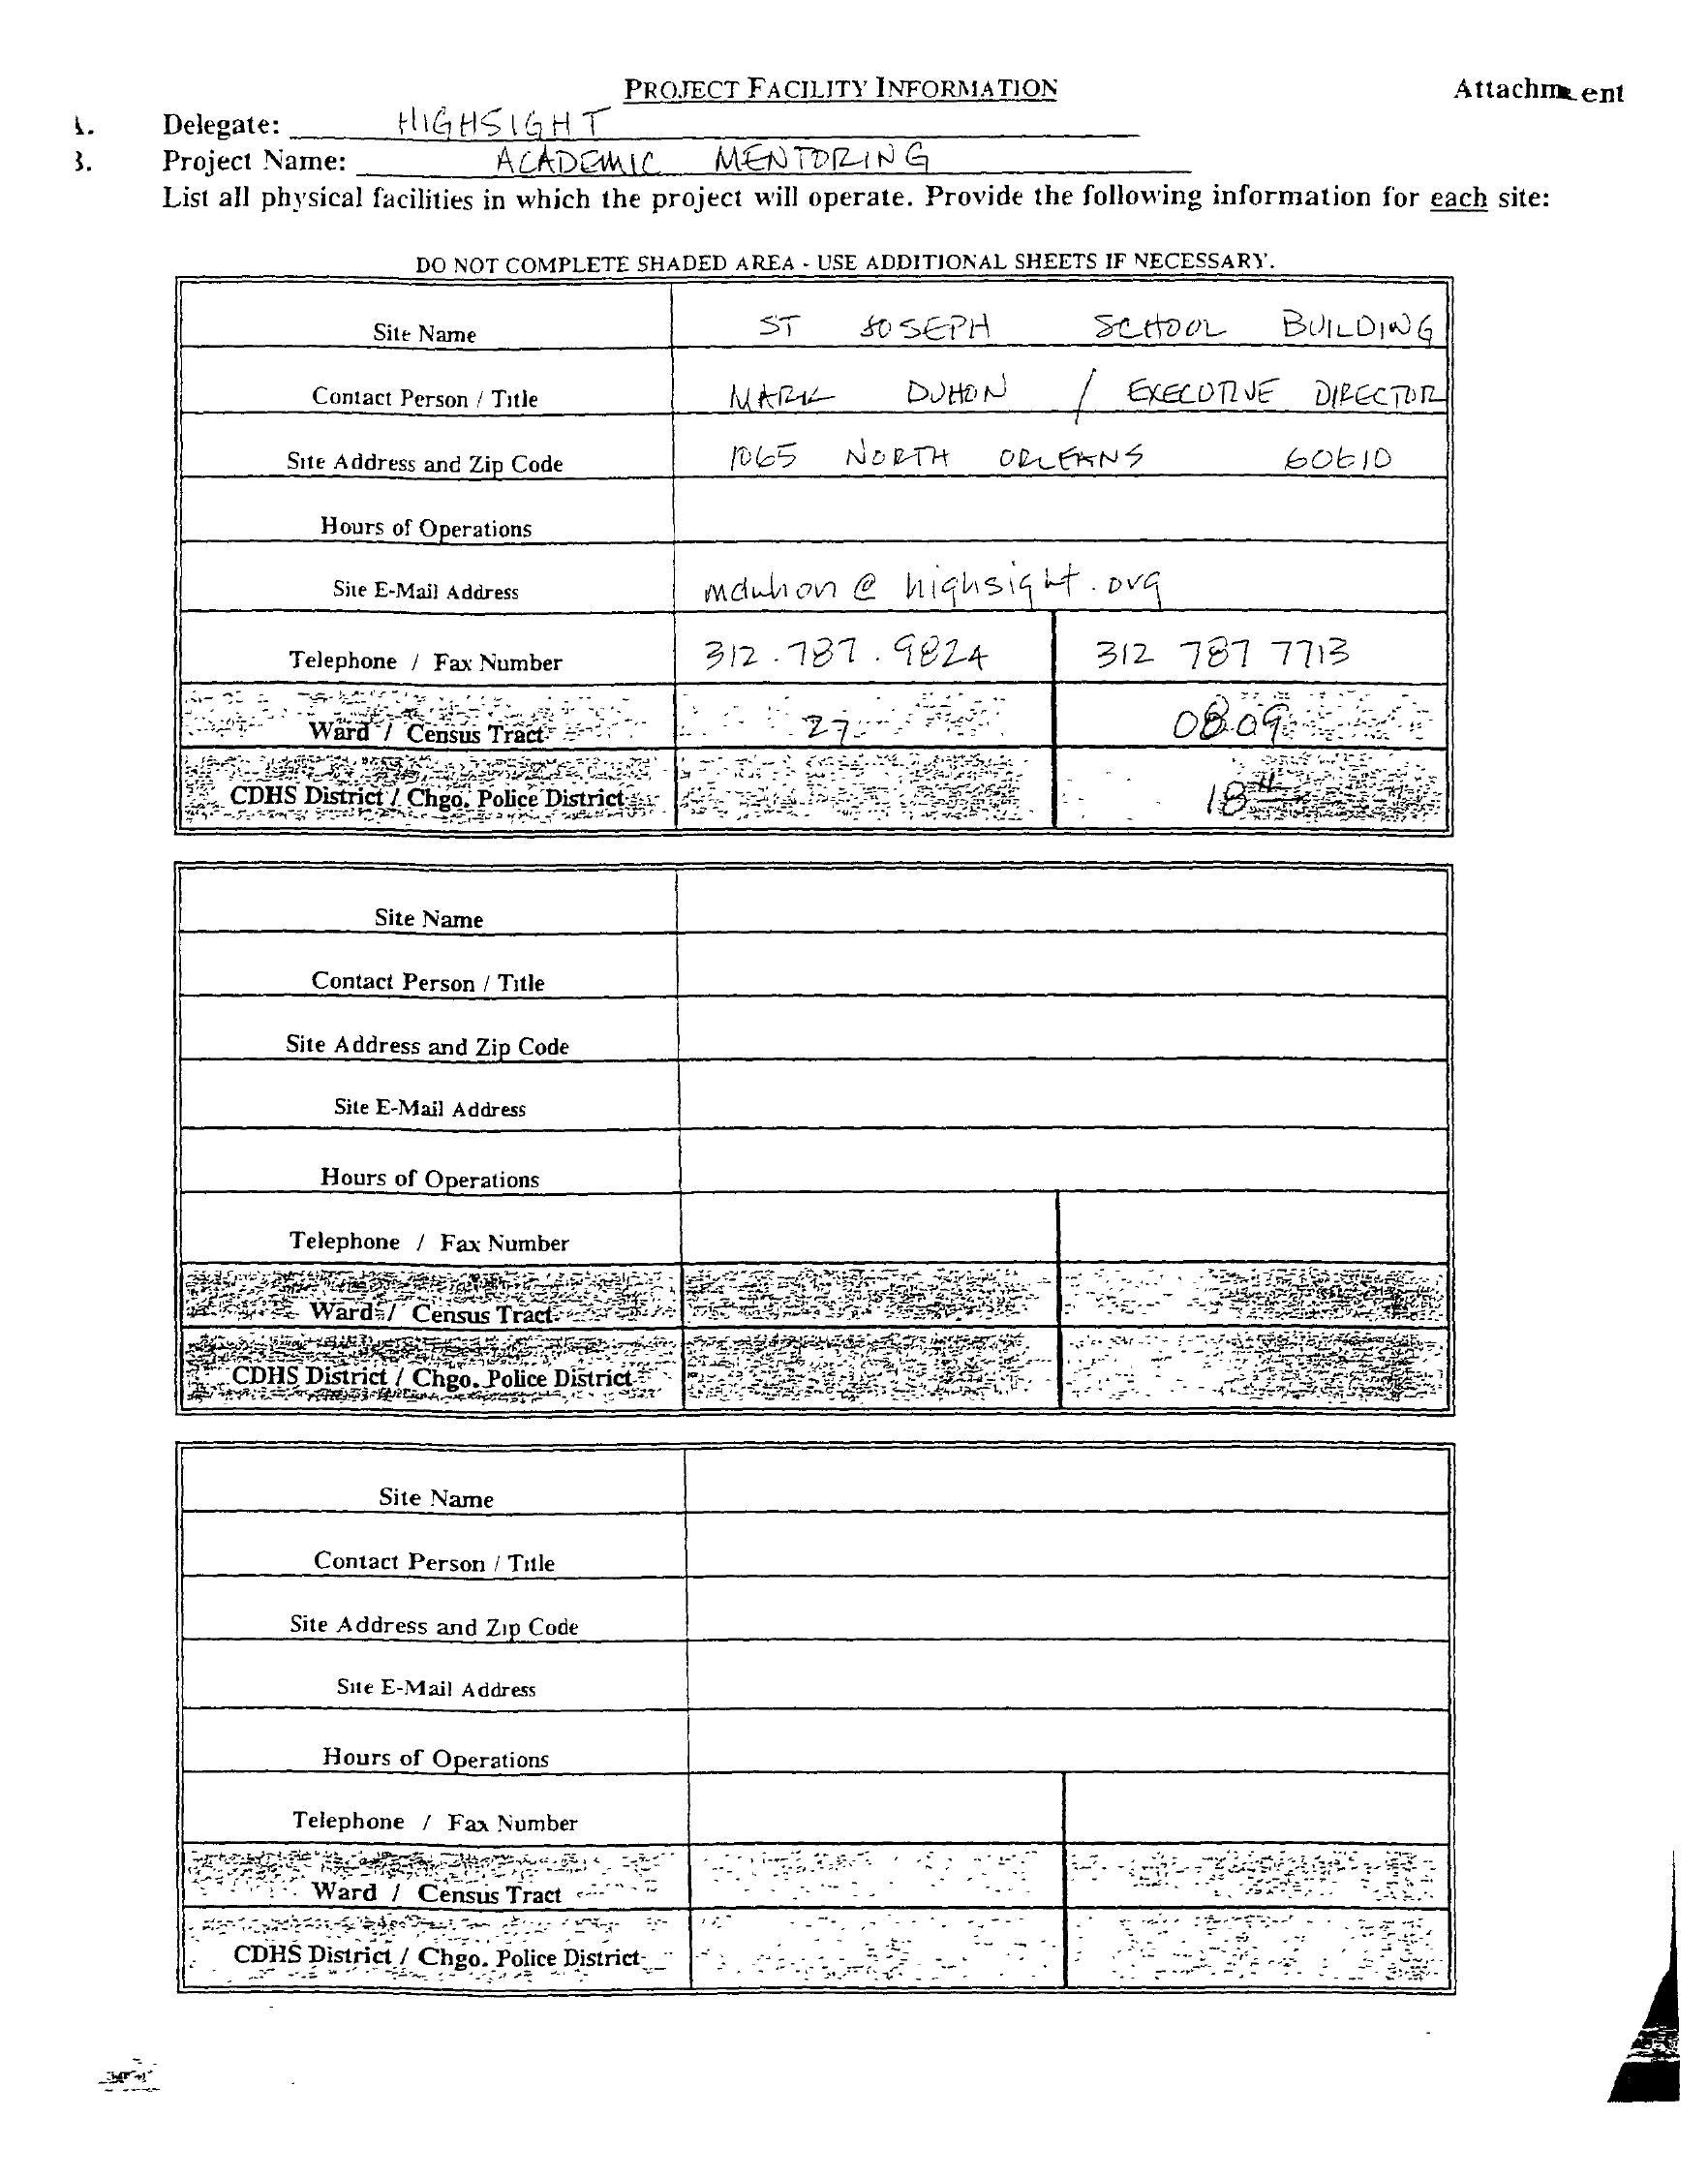 PROJECT FACILITY INFORMATION Attachment
Delegate: HIGHSIGHT
3. Project Name: ACADEMIC MENTORING
List all physical facilities in which the project will operate. Provide the following information for each site:
DO NOT COMPLETE SHADED AREA - USE ADDITIONAL SHEETS IF NECESSARY.
Site Name ST JOSEPH SCHOOL BUILDING
Contact Person / Title MARK DUHON / EXECUTIVE DIRECTOR
Site Address and Zip Code 1065 NORTH ORLEANS 60610
Hours of Operations
Site E-Mail Address mduhon@highsight.org
Telephone / Fax Number 312.787.9824 312 787 7713
Ward / Census Tract 27 0809
CDHS District / Chgo. Police District 18th
Site Name
Contact Person / Title
Site Address and Zip Code
Site E-Mail Address
Hours of Operations
Telephone / Fax Number
Ward / Census Tract
CDHS District / Chgo. Police District
Site Name
Contact Person / Title
Site Address and Zip Code
Site E-Mail Address
Hours of Operations
Telephone / Fax Number
Ward / Census Tract
CDHS District / Chgo. Police District